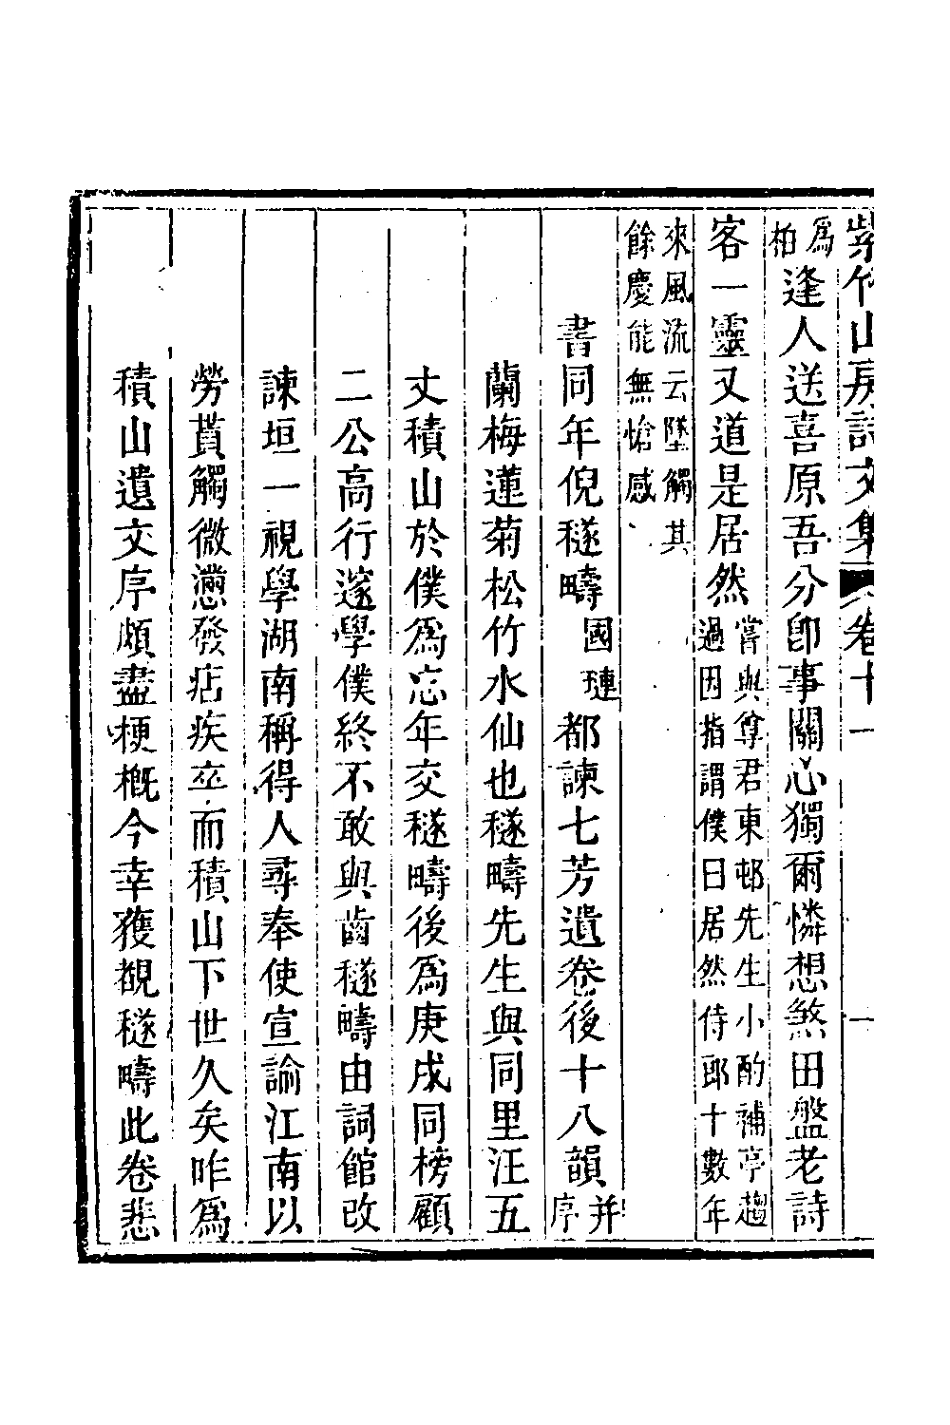 紫竹山房詩文集 卷十一 一
爲柏逢人送喜原吾分卽事關心獨爾憐想煞田盤老詩
客一靈又道是居然嘗與尊君東邨先生小酌補亭趨過因指謂僕曰居然侍郎十數年
來風流云墜觸其餘慶能無愴感
書同年倪穟疇國璉都諫七芳遺卷後十八韻并序
蘭梅蓮菊松竹水仙也穟疇先生與同里汪五
丈積山於僕爲忘年交穟疇後爲庚戌同榜顧
二公高行邃學僕終不敢與齒穟疇由詞館改
諫垣一視學湖南稱得人尋奉使宣諭江南以
勞蕡觸微懣發痁疾卒而積山下世久矣昨爲
積山遺文序頗盡梗槪今幸獲覩穟疇此卷悲